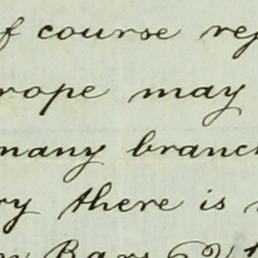 of course rep
rope may
many branc
ry there is
Bars